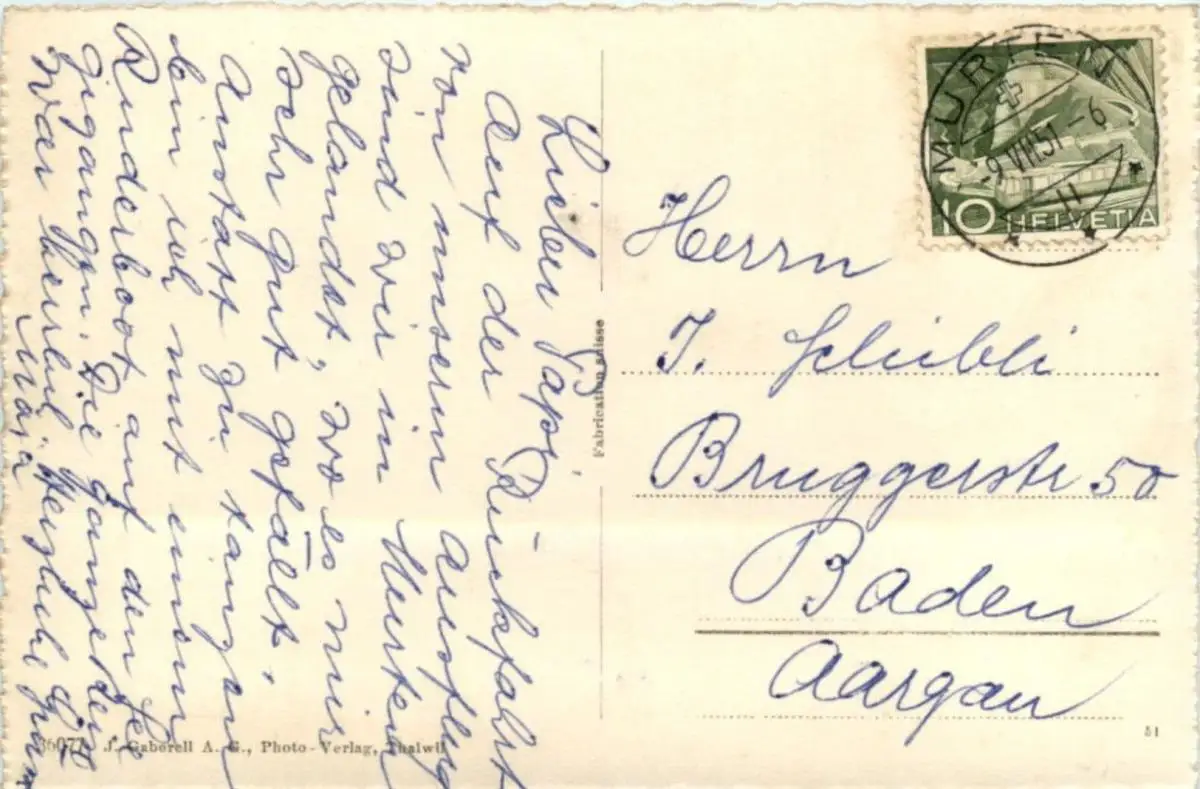 Lieber Papi
Auf der Rückfahrt
von unserm Ausflug
sind wir in Murten
gelandet, wo es mir
sehr gut gefällt.
Anstatt zu tanzen
bin ich mit einem
Ruderboot auf den See
gegangen. Die ganze
war herrlich. Herzliche
Fabrication suisse
MURTEN
-9.VIII.51.-6
11
10 HELVETIA
Herrn
J. Schibli
Bruggerstr 50
Baden
Aargau
J. Gaberell A. G., Photo-Verlag, Thalwil
51